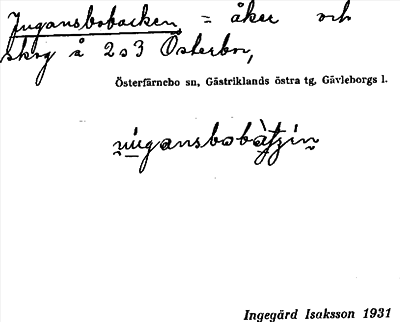 Jugansbobacken = åker och
skog å 2 o 3 Österbor,
Österfärnebo sn, Gästriklands östra tg, Gävleborgs l.
Ingegärd Isaksson 1931